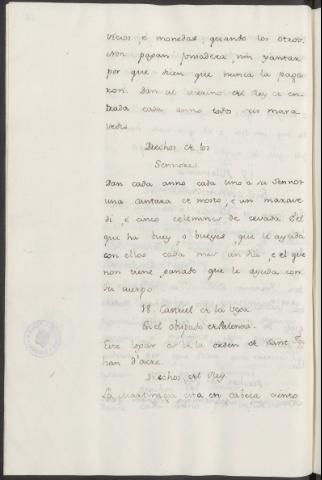 vicios, e monedas, quando los otros.
Non pagan fonsadera, nin yantar
por que dicen que nunca la paga
ron. Dan al merino del Rey de en
trada cada anno todos seis mara
vedis.
Drechos de los
Sennores
Dan cada anno cada uno a su Sennor
una cantara de mosto, e un marave
di, e cinco celemines de cevada e el
que ha buey, o bueyes, que le ayuda
con ellos cada mes un dia, e el que
non tiene ganado que le ayuda con
su cuerpo
18. Castriel de la Vega
En el obispado de Palencia.
Este logar es de la orden de Sant Jo
han d'acre.
Drechos del Rey
La Martiniega esta en cabeza ciento